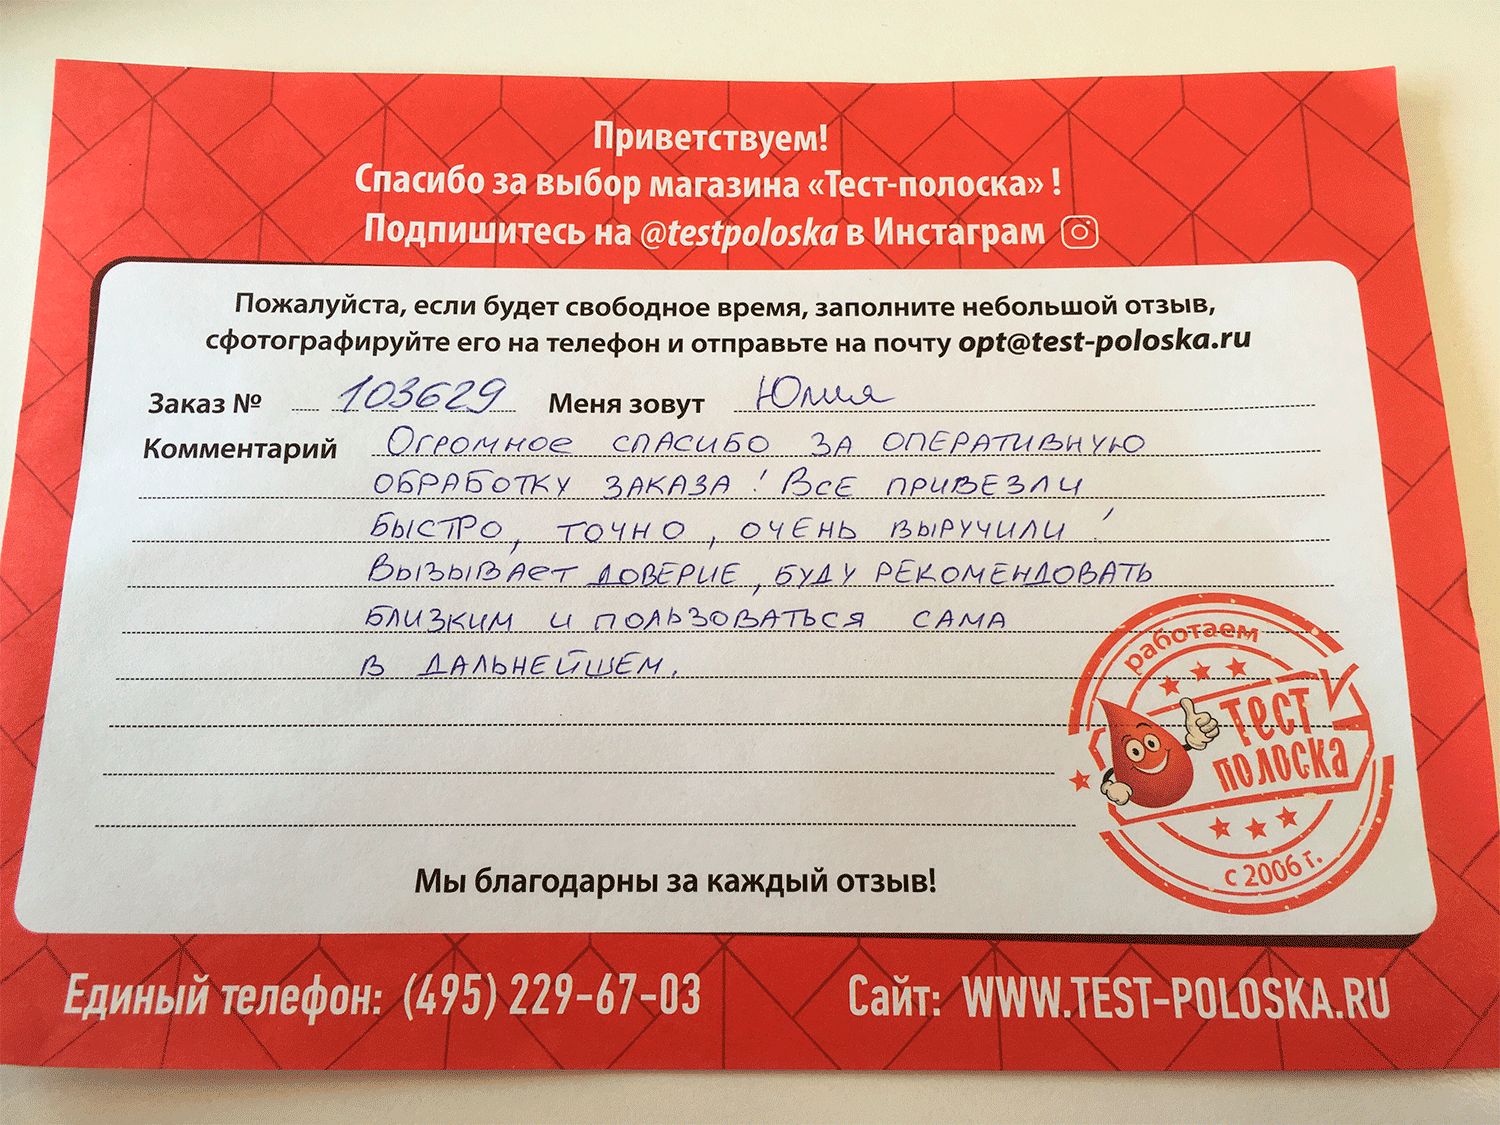 Приветствуем!
Спасибо за выбор магазина «Тест-полоска» !
Подпишитесь на @testpoloska в Инстаграм
Пожалуйста, если будет свободное время, заполните небольшой отзыв,
сфотографируйте его на телефон и отправьте на почту opt@test-poloska.ru
Заказ № 103629 Меня зовут Юлия
Комментарий Огромное спасибо за оперативную
обработку заказа! Все привезли
быстро, точно, очень выручили!
Вызывает доверие, буду рекомендовать
близким и пользоваться сама
в дальнейшем.
работаем
Тест
полоска
с 2006 г.
Мы благодарны за каждый отзыв!
Единый телефон: (495) 229-67-03 Сайт: WWW.TEST-POLOSKA.RU